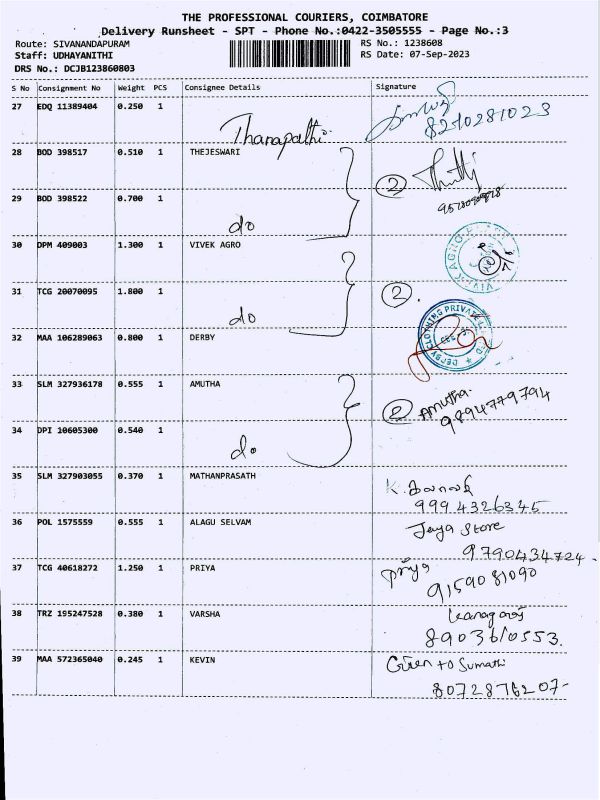 THE PROFESSIONAL COURIERS, COIMBATORE
Delivery Runsheet - SPT - Phone No.:0422-3505555 - Page No.:3
Route: SIVANANDAPURAM RS No.: 1238608
Staff: UDHAYANITHI RS Date: 07-Sep-2023
DRS No.: DCJB123860803
S No Consignment No Weight PCS Consignee Details Signature
27 EDQ 11389404 0.250 1
Thanapathi 8210281023
28 BOD 398517 0.510 1 THEJESWARI
2
29 BOD 398522 0.700 1
do
30 DPM 409003 1.300 1 VIVEK AGRO
VIVEK AGRO
31 TCG 20070095 1.800 1
2
do
32 MAA 106289063 0.800 1 DERBY
DERBY CLOTHING PRIVATE
33 SLM 327936178 0.555 1 AMUTHA
2 Amutha.
9894779794
34 DPI 10605300 0.540 1
do
35 SLM 327903055 0.370 1 MATHANPRASATH
K.
9994326345
36 POL 1575559 0.555 1 ALAGU SELVAM
Jaya Store
9790434724
37 TCG 40618272 1.250 1 PRIYA
Priya
9159081090
38 TRZ 195247528 0.380 1 VARSHA
8903610553.
39 MAA 572365040 0.245 1 KEVIN
Given to Sumathi
8072876207